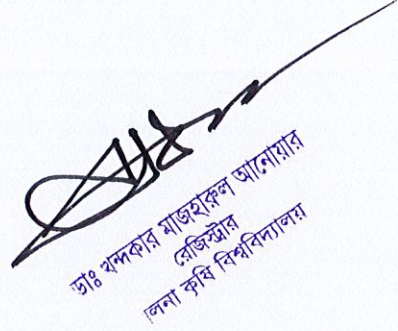 ডাঃ খন্দকার মাজহারুল আনোয়ার
রেজিস্ট্রার
লনা কৃষি বিশ্ববিদ্যালয়